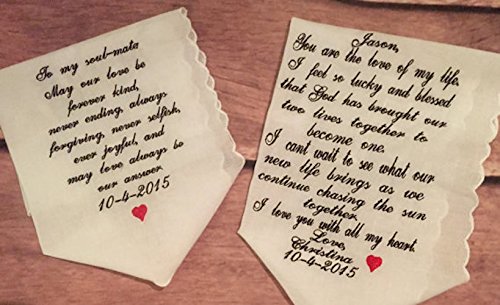 To my soul-mate
May our love be
forever kind,
never ending, always
forgiving, never selfish,
ever joyful, and
may love always be
our answer
10-4-2015
Jason,
You are the love of my life.
I feel so lucky and blessed
that God has brought our
two lives together to
become one.
I cant wait to see what our
new life brings as we
continue chasing the sun
together.
I love you with all my heart.
Love,
Christina
10-4-2015